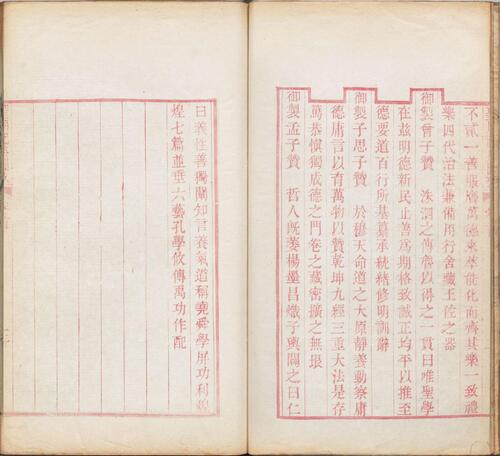 不貳一善服膺萬德來萃能化而齊其樂一致禮
樂四代治法兼備用行舍藏王佐之器
御製曾子贊 洙泗之傳魯以得之一貫曰唯聖學
在茲明德新民止善為期格致誠正均平以推至
德要道百行所基纂承統緒修明訓辭
御製子思子贊 於穆天命道之大原靜養動察庸
德庸言以育萬物以贊乾坤九經三重大法是存
篤恭慎獨成德之門卷之藏密擴之無垠
御製孟子贊 哲人既萎楊墨昌熾子輿闢之曰仁
曰義性善獨闡知言養氣道稱堯舜學屏功利煌
煌七篇並垂六藝孔學攸傳禹功作配